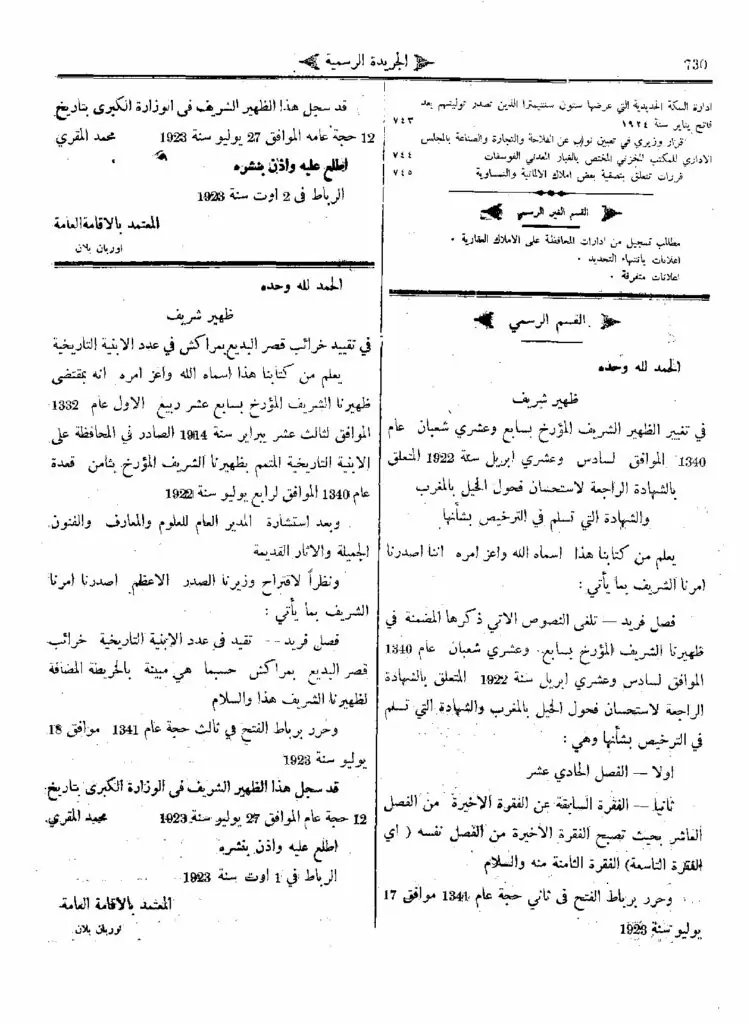 730
الجريدة الرسمية
ادارة السكة الحديدية التي عرضها ستون سنتيمترا الذين تصدر توليتهم بعد
فاتح يناير سنة ١٩٢٤ ٧٤٣
قرار وزيري في تعيين نواب عن الفلاحة والتجارة والصناعة بالمجلس
الاداري للمكتب المخزني المختص بالغبار المعدني الفوسفات ٧٤٤
قررات تتعلق بتصفية بعض املاك الالمانية والنمساوية ٧٤٥
القسم الغير الرسمي
مطالب تسجيل من ادارات المحافظة على الاملاك العقارية ٠
اعلانات بانتهاء التحديد ٠
اعلانات متفرقة ٠
القسم الرسمي
الحمد لله وحده
ظهير شريف
في تغيير الظهير الشريف المؤرخ بسابع وعشري شعبان عام
1340 الموافق لسادس وعشري ابريل سنة 1922 المتعلق
بالشهادة الراجعة لاستحسان فحول الخيل بالمغرب
والشهادة التي تسلم في الترخيص بشأنها
يعلم من كتابنا هذا اسماه الله واعز امره اننا اصدرنا
امرنا الشريف بما يأتي :
فصل فريد — تلغى النصوص الاتي ذكرها المضمنة في
ظهيرنا الشريف المؤرخ بسابع وعشري شعبان عام 1340
الموافق لسادس وعشري ابريل سنة 1922 المتعلق بالشهادة
الراجعة لاستحسان فحول الخيل بالمغرب والشهادة التي تسلم
في الترخيص بشأنها وهي :
اولا — الفصل الحادي عشر
ثانيا — الفقرة السابقة عن الفقرة الاخيرة من الفصل
العاشر بحيث تصبح الفقرة الاخيرة من الفصل نفسه ( اي
الفقرة التاسعة) الفقرة الثامنة منه والسلام
وحرر برباط الفتح في ثاني حجة عام 1341 موافق 17
يوليو سنة 1923
قد سجل هذا الظهير الشريف في الوزارة الكبرى بتاريخ
12 حجة عامه الموافق 27 يوليو سنة 1923 محمد المقري
اطلع عليه واذن بنشره
الرباط في 2 اوت سنة 1923
المعتمد بالاقامة العامة
اوربان بلان
الحمد لله وحده
ظهير شريف
في تقييد خرائب قصر البديع بمراكش في عدد الابنية التاريخية
يعلم من كتابنا هذا اسماه الله واعز امره انه بمقتضى
ظهيرنا الشريف المؤرخ بسابع عشر ربيع الاول عام 1332
الموافق لثالث عشر يبراير سنة 1914 الصادر في المحافظة على
الابنية التاريخية المتمم بظهيرنا الشريف المؤرخ بثامن قعدة
عام 1340 الموافق لرابع يوليو سنة 1922
وبعد استشارة المدير العام للعلوم والمعارف والفنون
الجميلة والاثار القديمة
ونظراً لاقتراح وزيرنا الصدر الاعظم اصدرنا امرنا
الشريف بما يأتي :
فصل فريد -- تقيد في عدد الابنية التاريخية خرائب
قصر البديع بمراكش حسبما هي مبينة بالخريطة المضافة
لظهيرنا الشريف هذا والسلام
وحرر برباط الفتح في ثالث حجة عام 1341 موافق 18
يوليو سنة 1923
قد سجل هذا الظهير الشريف في الوزارة الكبرى بتاريخ
12 حجة عام الموافق 27 يوليو سنة 1923 محمد المقري
اطلع عليه واذن بنشره
الرباط في 1 اوت سنة 1923
المعتمد بالاقامة العامة
اوربان بلان